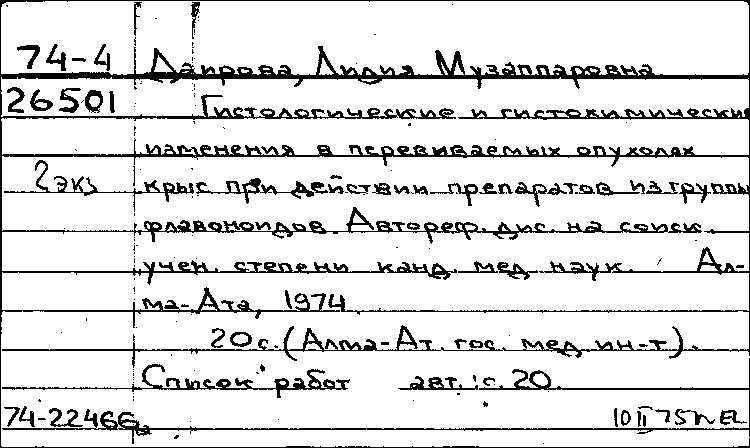 74-4 Даирова, Лидия Музаппаровна.
26501 Гистологические и гистохимические
изменения в перевиваемых опухолях
2 экз крыс при действии препаратов из группы
флавоноидов. Автореф. дис. на соиск.
учен. степени канд. мед. наук. Ал-
ма-Ата, 1974.
20 с. (Алма-Ат. гос. мед. ин-т).
Список работ авт.: с. 20.
74-22466 10 II 75